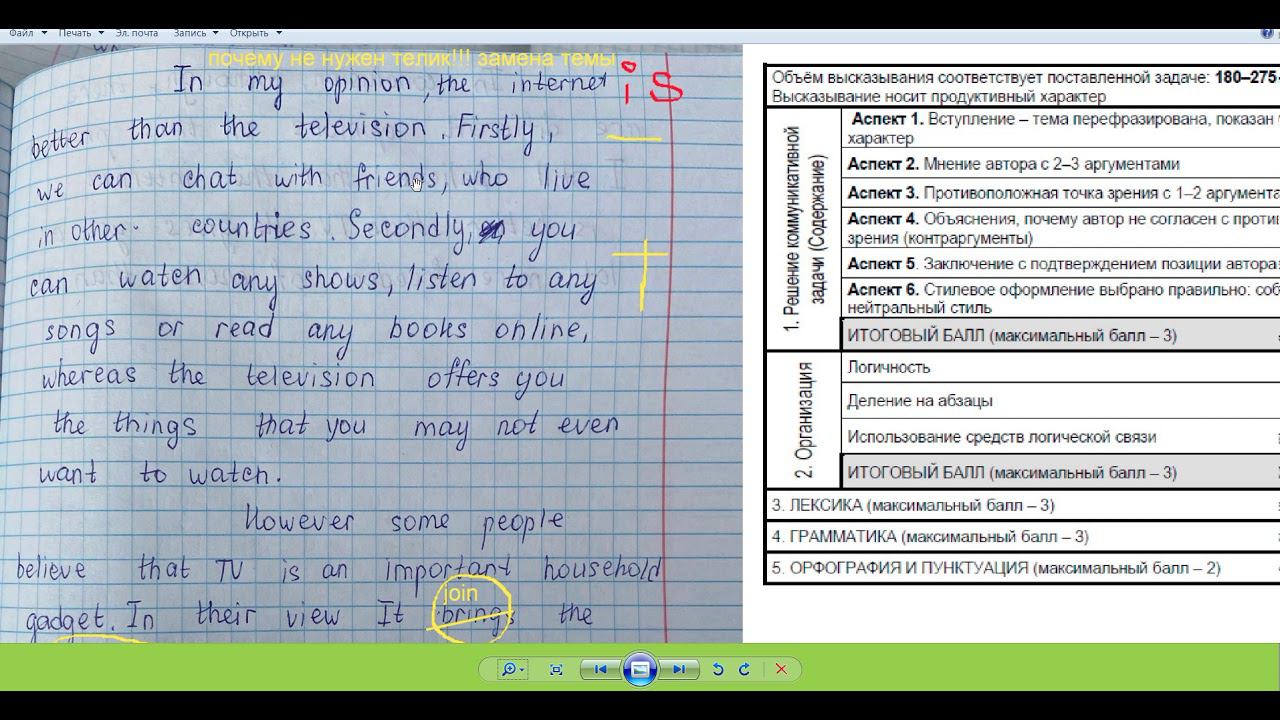 Файл Печать Эл. почта Запись Открыть
почему не нужен телик!!! замена темы
In my opinion, the internet is
better than the television. Firstly,
we can chat with friends, who live
in other countries. Secondly, you
can watch any shows, listen to any
songs or read any books online,
whereas the television offers you
the things that you may not even
want to watch.
However some people
believe that TV is an important household
join
gadget. In their view It brings the
Объём высказывания соответствует поставленной задаче: 180–275
Высказывание носит продуктивный характер
1. Решение коммуникативной
задачи (Содержание)
Аспект 1. Вступление – тема перефразирована, показан
характер
Аспект 2. Мнение автора с 2–3 аргументами
Аспект 3. Противоположная точка зрения с 1–2 аргумента
Аспект 4. Объяснения, почему автор не согласен с проти
зрения (контраргументы)
Аспект 5. Заключение с подтверждением позиции автора
Аспект 6. Стилевое оформление выбрано правильно: соб
нейтральный стиль
ИТОГОВЫЙ БАЛЛ (максимальный балл – 3)
2. Организация
Логичность
Деление на абзацы
Использование средств логической связи
ИТОГОВЫЙ БАЛЛ (максимальный балл – 3)
3. ЛЕКСИКА (максимальный балл – 3)
4. ГРАММАТИКА (максимальный балл – 3)
5. ОРФОГРАФИЯ И ПУНКТУАЦИЯ (максимальный балл – 2)